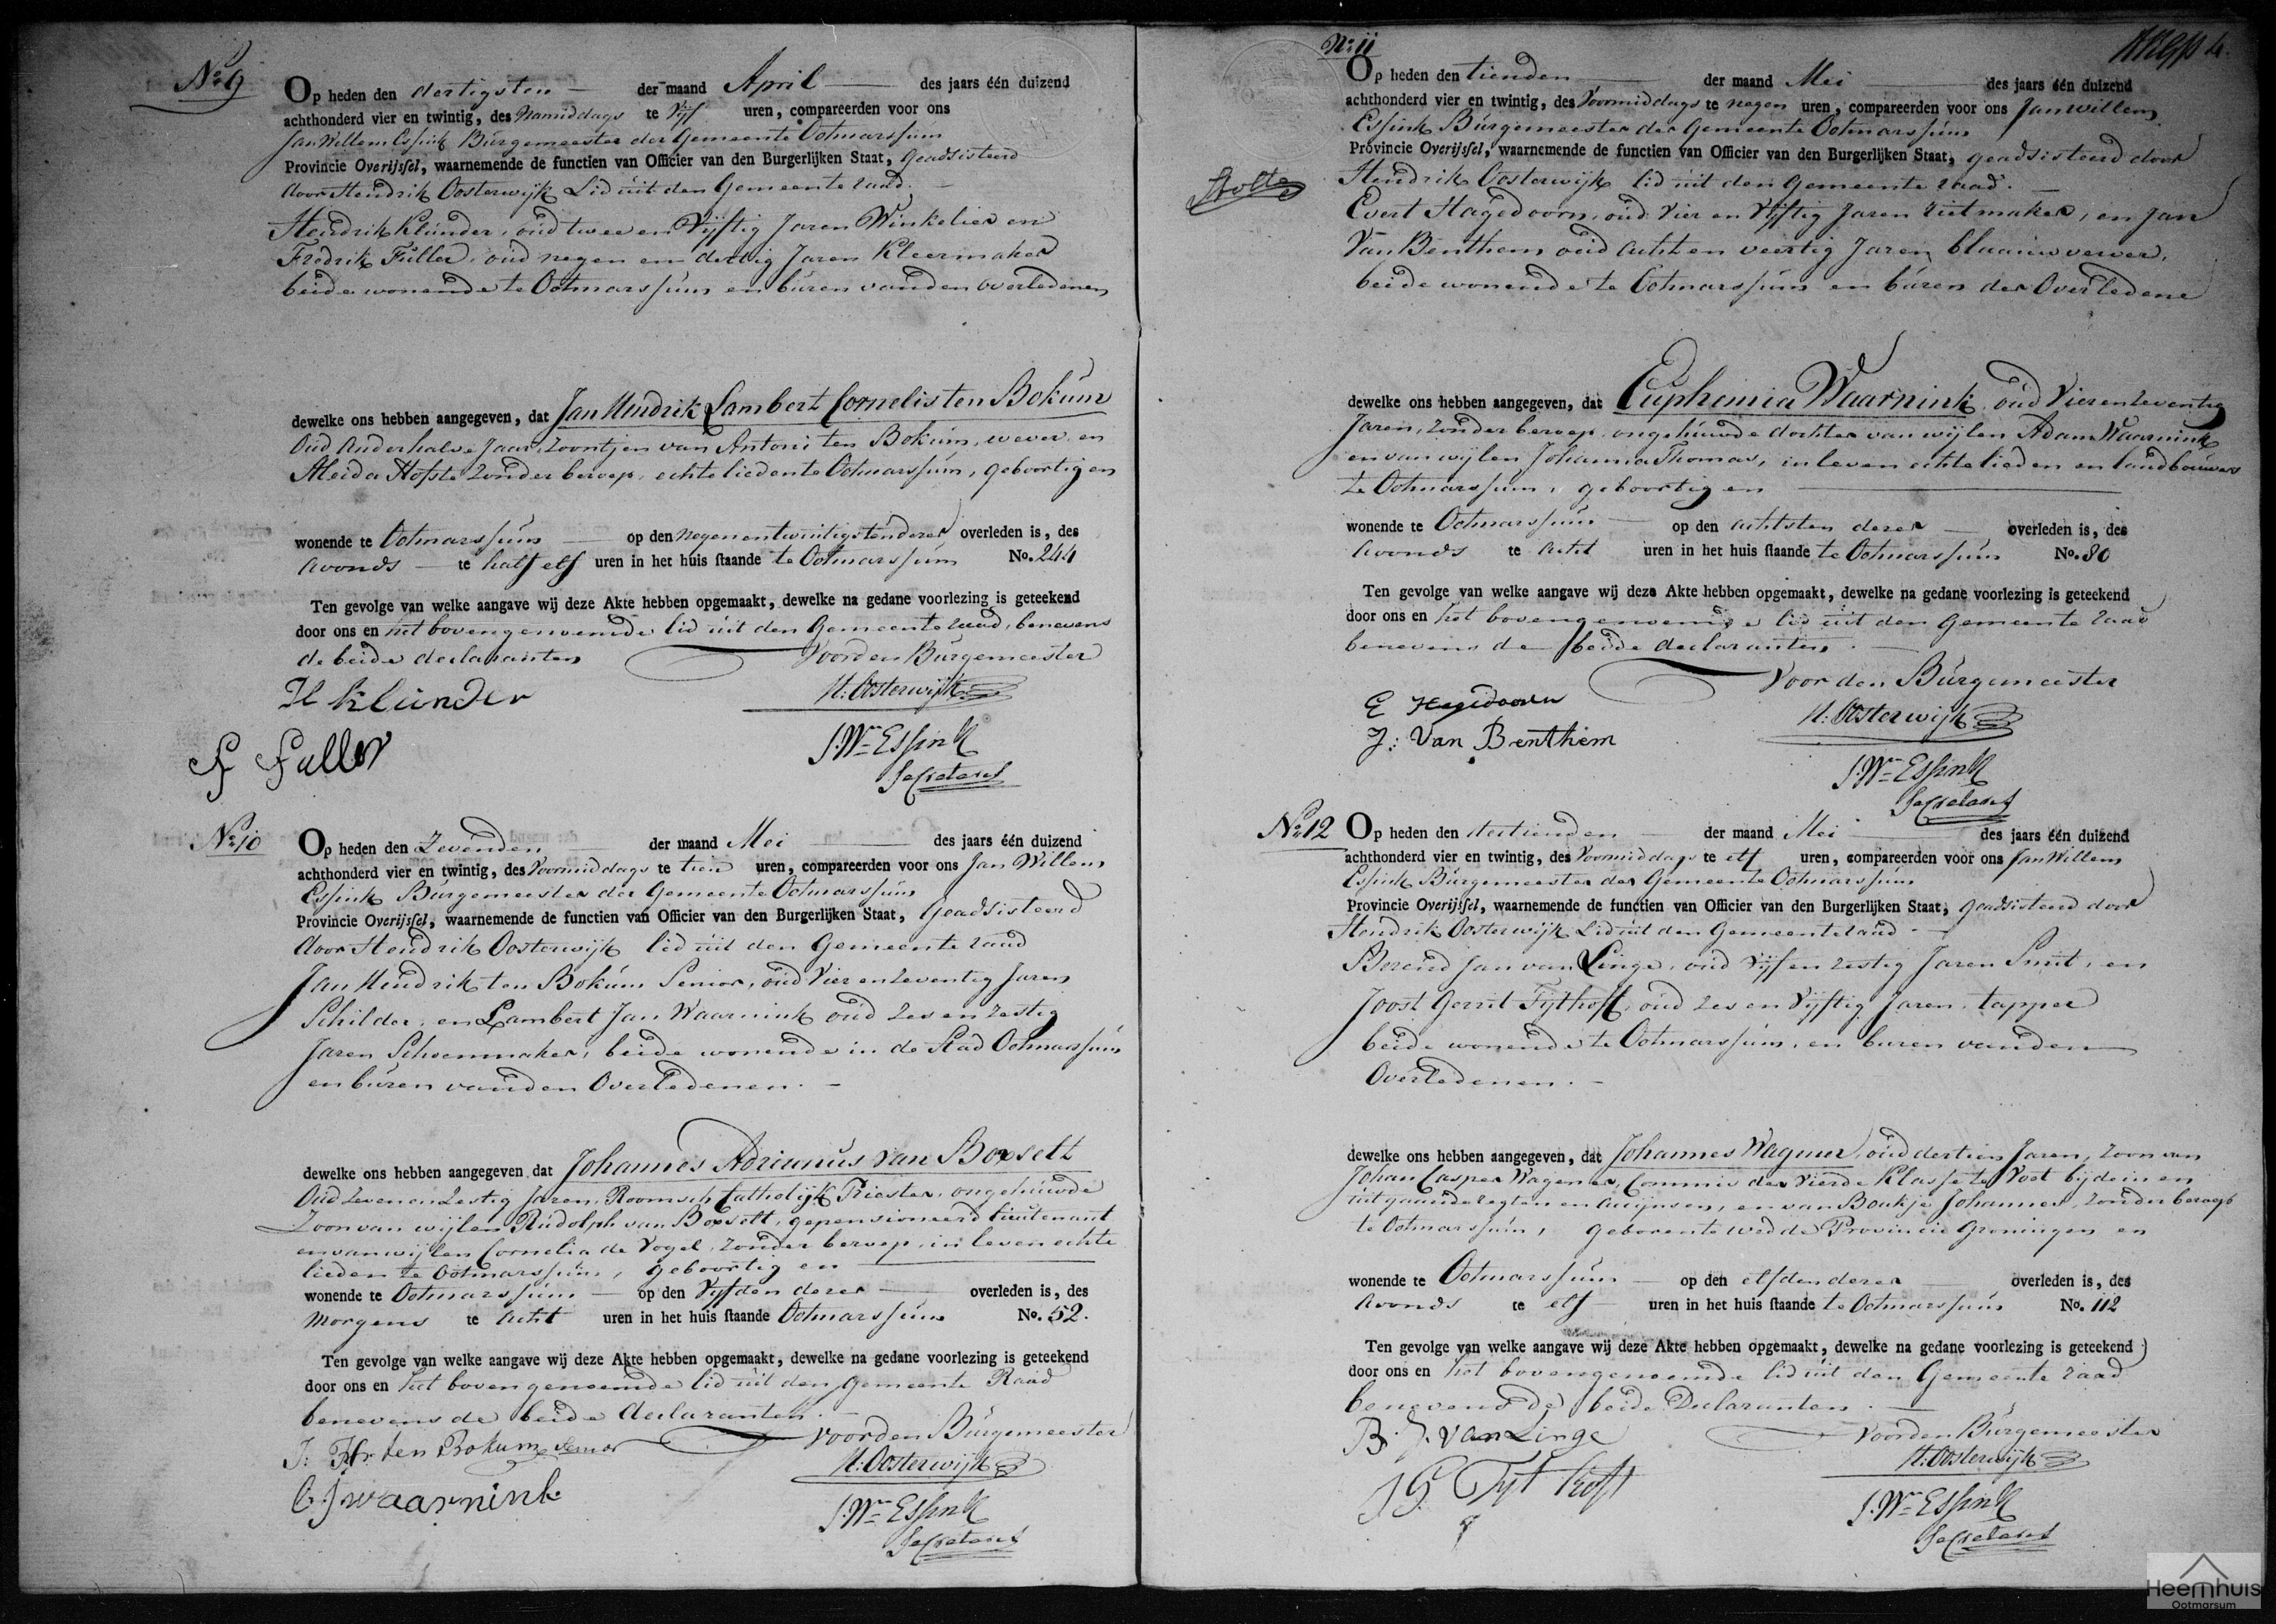 No 9
Op heden den dertigsten der maand April des jaars één duizend
achthonderd vier en twintig, des Namiddags te Vijf uren, compareerden voor ons
Jan Willem Essink Burgemeester der Gemeente Ootmarssum
Provincie Overijssel, waarnemende de functien van Officier van den Burgerlijken Staat, geadsisteerd
door Hendrik Oosterwijk Lid uit den Gemeente raad.
Hendrik Klunder, oud twee en Vijftig Jaren Winkelier en
Fredrik Fuller, oud negen en dertig Jaren Kleermaker
beide wonende te Ootmarssum en buren van den overledenen
dewelke ons hebben aangegeven, dat Jan Hendrik Lambert Cornelis ten Bokum
Oud Anderhalve Jaar, Zoontjen van Antoni ten Bokum, wever, en
Aleida Hofste Zonder beroep, echte lieden te Ootmarssum, geboortig en
wonende te Ootmarssum op den negenentwintigsten dezer overleden is, des
Avonds te half elf uren in het huis staande te Ootmarssum No. 244
Ten gevolge van welke aangave wij deze Akte hebben opgemaakt, dewelke na gedane voorlezing is geteekend
door ons en het bovengenoemde lid uit den Gemeente raad, benevens
de beide declaranten Voor den Burgemeester
H Klunder H: Oosterwijk
F Fuller J: Wm Essink
Secretaris
No 10
Op heden den Zevenden der maand Mei des jaars één duizend
achthonderd vier en twintig, des Voormiddags te tien uren, compareerden voor ons Jan Willem
Essink Burgemeester der Gemeente Ootmarssum
Provincie Overijssel, waarnemende de functien van Officier van den Burgerlijken Staat, Geadsisteerd
door Hendrik Oosterwijk lid uit den Gemeente raad
Jan Hendrik ten Bokum Senior, oud Vier en Zeventig Jaren
Schilder, en Lambert Jan Waarnink oud zes en zestig
Jaren Schoenmaker, beide wonende in de Stad Ootmarssum
en buren van den Overledenen.
dewelke ons hebben aangegeven dat Johannes Adrianus van Boxsett
Oud Zeven en Zestig Jaren, Roomsch Catholijk Priester, ongehuwde
Zoon van wijlen Rudolph van Boxsett, gepensioneerd lieutenant
en van wijlen Cornelia de Vogel, Zonder beroep, in leven echte
lieden te Ootmarssum, geboortig en
wonende te Ootmarssum op den Vijfden dezer overleden is, des
Morgens te Acht uren in het huis staande Ootmarssum No. 52.
Ten gevolge van welke aangave wij deze Akte hebben opgemaakt, dewelke na gedane voorlezing is geteekend
door ons en het bovengenoemde lid uit den Gemeente Raad
benevens de beide declaranten. Voor den Burgemeester
J: H: ten Bokum Senior H: Oosterwijk
L J Waarnink J: Wm Essink
Secretaris
No 11
Op heden den tienden der maand Mei des jaars één duizend
achthonderd vier en twintig, des Voormiddags te negen uren, compareerden voor ons Jan Willem
Essink Burgemeester der Gemeente Ootmarssum
Provincie Overijssel, waarnemende de functien van Officier van den Burgerlijken Staat, geadsisteerd door
Hendrik Oosterwijk lid uit den Gemeente raad.
Evert Hagedoorn, oud Vier en Vijftig Jaren rietmaker, en Jan
Van Benthem oud Acht en veertig Jaren blaauwverver,
beide wonende te Ootmarssum en buren der Overledene
dewelke ons hebben aangegeven, dat Euphemia Waarnink, oud Vier en Zeventig
Jaren, zonder beroep, ongehuwde dochter van wijlen Adam Waarnink
en van wijlen Johanna Thomas, in leven echte lieden en landbouwers
te Ootmarssum, geboortig en
wonende te Ootmarssum op den Achtsten dezer overleden is, des
Avonds te Acht uren in het huis staande te Ootmarssum No. 80
Ten gevolge van welke aangave wij deze Akte hebben opgemaakt, dewelke na gedane voorlezing is geteekend
door ons en het bovengenoemde lid uit den Gemeente raad
benevens de beide declaranten.
Voor den Burgemeester
E Hagedoorn H: Oosterwijk
J: Van Benthem J: Wm Essink
Secretaris
No 12
Op heden den dertienden der maand Mei des jaars één duizend
achthonderd vier en twintig, des Voormiddags te elf uren, compareerden voor ons Jan Willem
Essink Burgemeester der Gemeente Ootmarssum
Provincie Overijssel, waarnemende de functien van Officier van den Burgerlijken Staat, geadsisteerd door
Hendrik Oosterwijk Lid uit den Gemeente raad.
Berend Jan van Linge, oud Vijf en zestig Jaren Smit, en
Joost Gerrit Tijthoff, oud zes en Vijftig Jaren, tapper
beide wonende te Ootmarssum, en buren van den
Overledenen.
dewelke ons hebben aangegeven, dat Johannes Wagener, oud dertien Jaren, zoon van
Johan Casper Wagener, Commis der Vierde Klasse te Voet bij de in en
uitgaande regten en accijnsen, en van Baukje Johannes, zonder beroep
te Ootmarssum, geboren te Wedde Provincie Groningen en
wonende te Ootmarssum op den elfden dezer overleden is, des
Avonds te elf uren in het huis staande te Ootmarssum No. 112
Ten gevolge van welke aangave wij deze Akte hebben opgemaakt, dewelke na gedane voorlezing is geteekend
door ons en het bovengenoemde lid uit den Gemeente raad
benevens de beide Declaranten.
B. J. van Linge Voor den Burgemeester
H: Oosterwijk
J G Tijthoff J: Wm Essink
Secretaris
Heemhuis
Ootmarsum